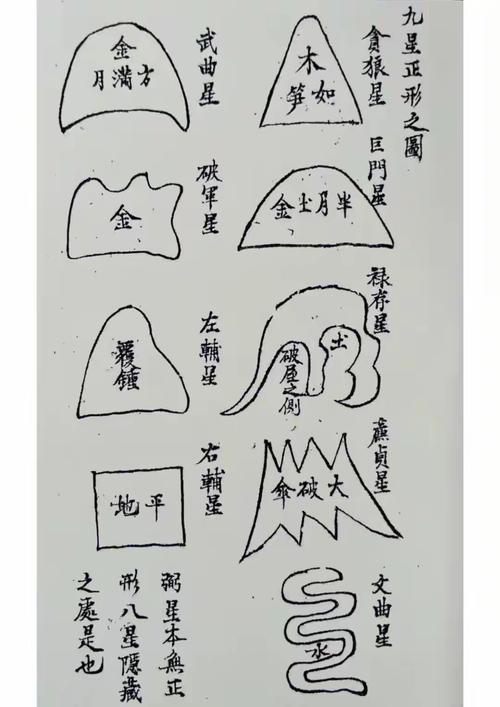 九星正形之圖
貪狼星
木如笋
巨門星
半月土金
禄存星
土
破屋之側
廉貞星
大破傘
文曲星
水
武曲星
金
方滿月
破軍星
金
左輔星
覆鍾
右輔星
平地
弼星本無正
形八星隱藏
之處是也